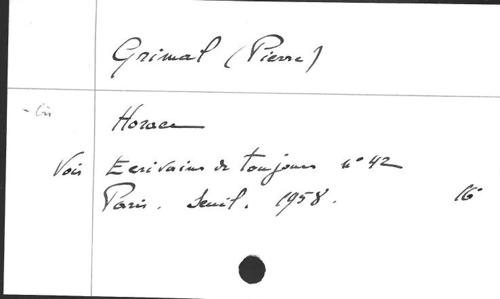 Grimal (Pierre)
Horace
Voir Ecrivains de toujours n° 42
Paris. Seuil. 1958. 16°